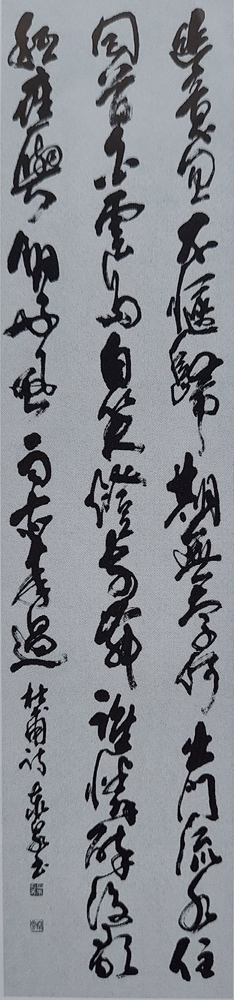 幽意忽不愜歸期無奈何出門流水住
回首白雲多自笑燈前舞誰憐醉後歌
祗應與朋好風雨亦來過 杜甫詩 書